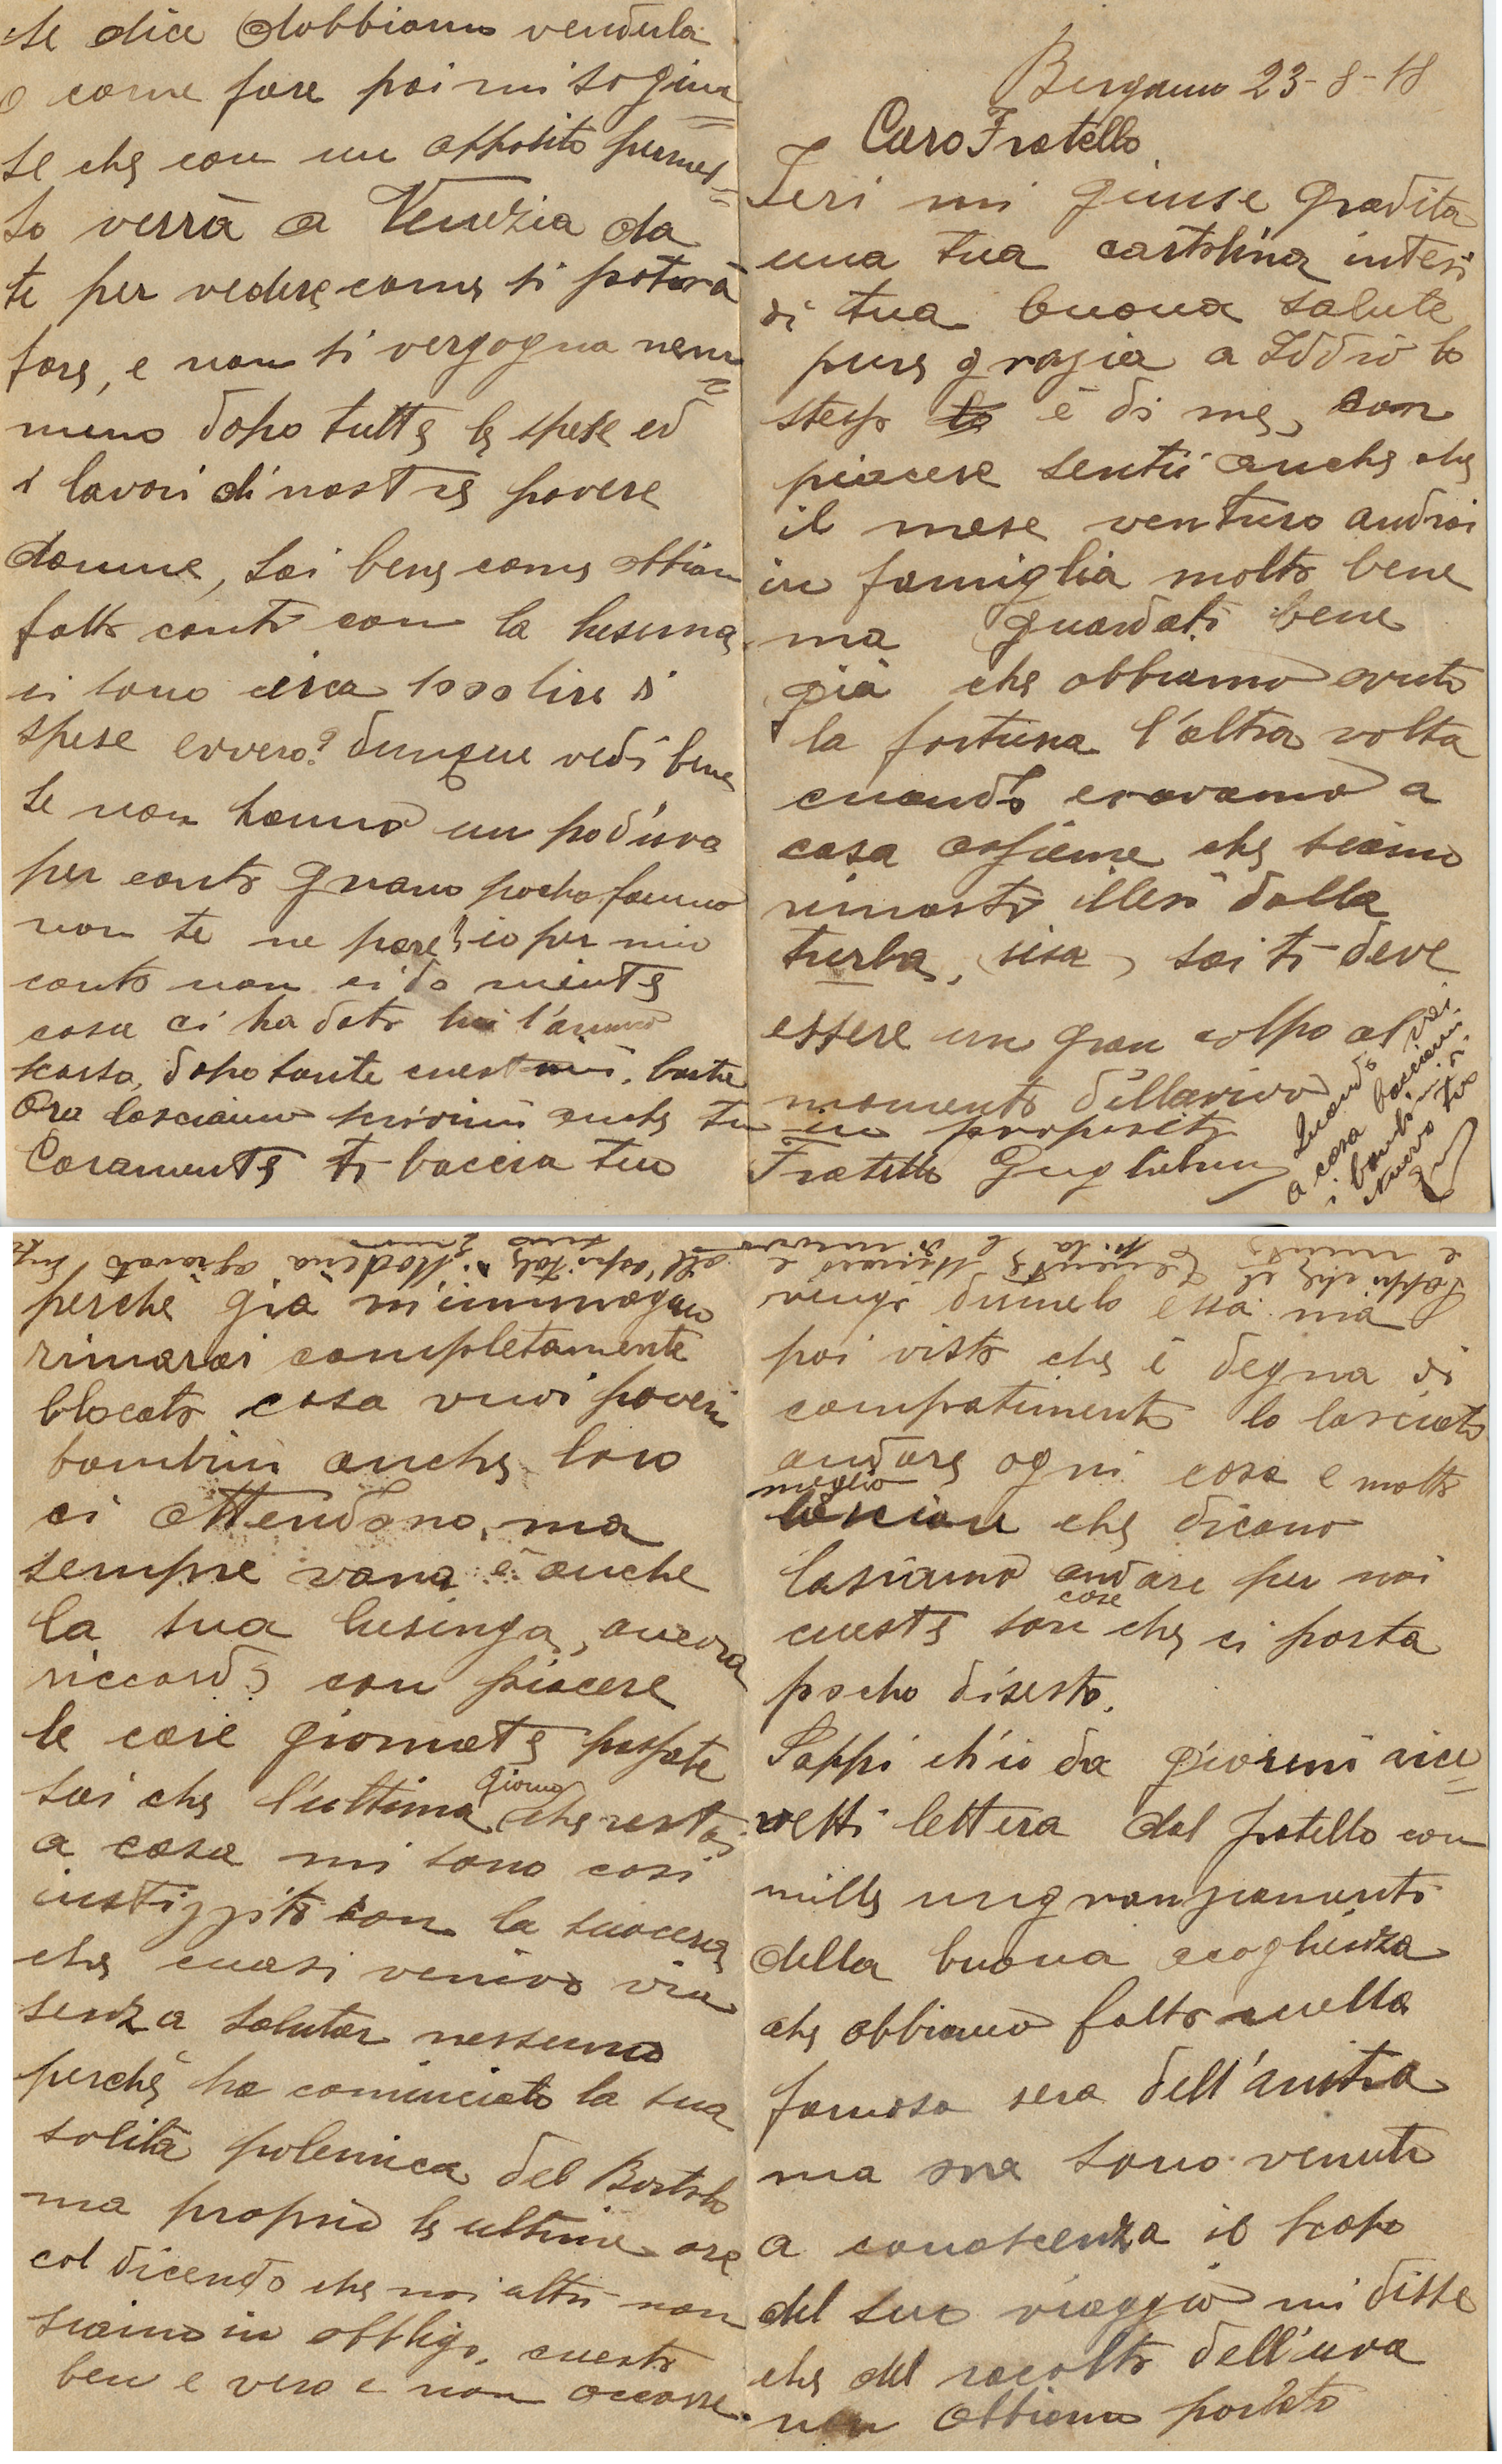 Bergamo 23-8-18
Caro Fratello,
Ieri mi giunse gradita
una tua cartolina intesi
di tua buona salute
pure grazia a Iddio lo
stesso è di me, con
piacere sentii anche che
il mese venturo andrai
in famiglia molto bene
ma guardati bene
già che abbiamo avuto
la fortuna l'altra volta
cuando eravamo a
casa assieme che siamo
rimasti illesi dalla
turba, sisa, sai ti deve
essere un gran colpo al
momento dell'arrivo
perchè già m'immagino
rimarai completamente
blocato cosa vuoi poveri
bambini anche loro
ci attendono, ma
sempre vana è anche
la sua lusinga, ancora
riccordo con piacere
le care giornate passate
sai che l'ultima giorno che restai
a casa mi sono cosi
instizzito con la suocera
che cuasi venivo via
senza saluter nessuno
perchè ha cominciato la sua
solita polemica del Bortolo
ma proprio le ultime ore
col dicendo che noi altri non
siamo in obbligo, cuesto
ben e vero e non occorre
vengo dirmelo essa ma
poi visto che è degna di
compatimento lo lasciato
andare ogni cosa e molto
meglio
lasciare che dicano
lasiamo andare per noi
cueste cose son che ci porta
pocho disesto.
Sappi ch'io da giorni rice=
vetti lettera dal fratello con
mille ringranziamenti
della buona acoglienza
che abbiamo fatto cuella
famosa sera dell'anitra
ma ora sono venuto
a conoscenza il scopo
del suo viaggio mi disse
che del racolto dell'uva
non abbiamo parlato
se dice dobbiamo venderla
o come fare poi mi sogiun=
se che con un apposito permes=
so verrà a Venezia da
te per vedere come si potrà
fare, e non si vergogna nem=
meno dopo tutte le spese ed
i lavori di nostre povere
donne, sai bene come abbiam
fatto conti con la
ci sono circa 1000 lire di
spese evvero? dunque vedi bene
se non hanno un pod'uva
per conto grano pocho fanno
non te ne pare? io per mio
conto non ci do niente
cosa ci ha dato lui l'anno
scorso, dopo tante cuestioni, basta
Ora lasciamo scrivimi anche tu in proposito
Caramente ti baccia tuo Fratello Guglielmo
Cuando vai
a casa bacciami
i bambini
nuovo tuo
Sappi che il Clemente
all'ospitale di Modena